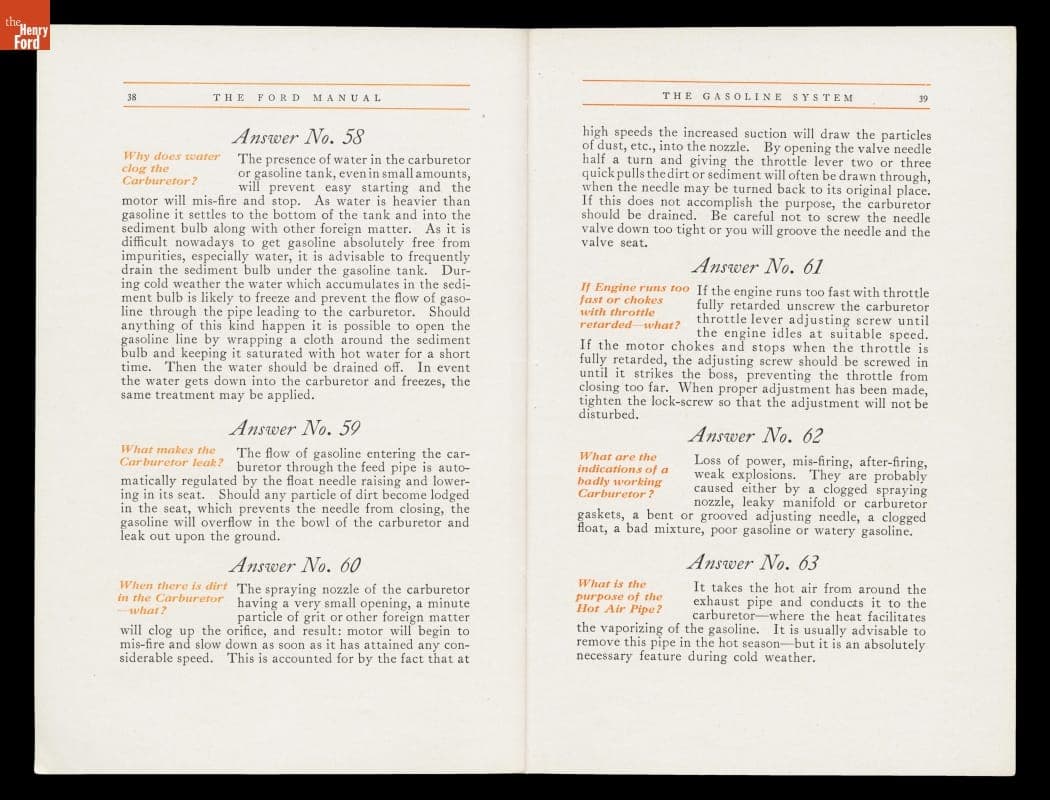 the
Henry
Ford
38 THE FORD MANUAL
Answer No. 58
Why does water
clog the
Carburetor?
The presence of water in the carburetor
or gasoline tank, even in small amounts,
will prevent easy starting and the
motor will mis-fire and stop. As water is heavier than
gasoline it settles to the bottom of the tank and into the
sediment bulb along with other foreign matter. As it is
difficult nowadays to get gasoline absolutely free from
impurities, especially water, it is advisable to frequently
drain the sediment bulb under the gasoline tank. Dur-
ing cold weather the water which accumulates in the sedi-
ment bulb is likely to freeze and prevent the flow of gaso-
line through the pipe leading to the carburetor. Should
anything of this kind happen it is possible to open the
gasoline line by wrapping a cloth around the sediment
bulb and keeping it saturated with hot water for a short
time. Then the water should be drained off. In event
the water gets down into the carburetor and freezes, the
same treatment may be applied.
Answer No. 59
What makes the
Carburetor leak?
The flow of gasoline entering the car-
buretor through the feed pipe is auto-
matically regulated by the float needle raising and lower-
ing in its seat. Should any particle of dirt become lodged
in the seat, which prevents the needle from closing, the
gasoline will overflow in the bowl of the carburetor and
leak out upon the ground.
Answer No. 60
When there is dirt
in the Carburetor
—what?
The spraying nozzle of the carburetor
having a very small opening, a minute
particle of grit or other foreign matter
will clog up the orifice, and result: motor will begin to
mis-fire and slow down as soon as it has attained any con-
siderable speed. This is accounted for by the fact that at
THE GASOLINE SYSTEM 39
high speeds the increased suction will draw the particles
of dust, etc., into the nozzle. By opening the valve needle
half a turn and giving the throttle lever two or three
quick pulls the dirt or sediment will often be drawn through,
when the needle may be turned back to its original place.
If this does not accomplish the purpose, the carburetor
should be drained. Be careful not to screw the needle
valve down too tight or you will groove the needle and the
valve seat.
Answer No. 61
If Engine runs too
fast or chokes
with throttle
retarded—what?
If the engine runs too fast with throttle
fully retarded unscrew the carburetor
throttle lever adjusting screw until
the engine idles at suitable speed.
If the motor chokes and stops when the throttle is
fully retarded, the adjusting screw should be screwed in
until it strikes the boss, preventing the throttle from
closing too far. When proper adjustment has been made,
tighten the lock-screw so that the adjustment will not be
disturbed.
Answer No. 62
What are the
indications of a
badly working
Carburetor?
Loss of power, mis-firing, after-firing,
weak explosions. They are probably
caused either by a clogged spraying
nozzle, leaky manifold or carburetor
gaskets, a bent or grooved adjusting needle, a clogged
float, a bad mixture, poor gasoline or watery gasoline.
Answer No. 63
What is the
purpose of the
Hot Air Pipe?
It takes the hot air from around the
exhaust pipe and conducts it to the
carburetor—where the heat facilitates
the vaporizing of the gasoline. It is usually advisable to
remove this pipe in the hot season—but it is an absolutely
necessary feature during cold weather.